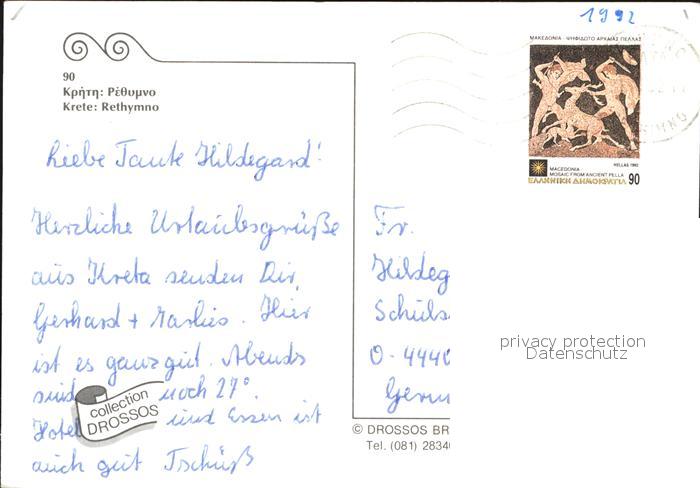 1992
ΜΑΚΕΔΟΝΙΑ - ΨΗΦΙΔΩΤΟ ΑΡΧΑΙΑΣ ΠΕΛΛΑΣ
HELLAS 1992
MACEDONIA
MOSAIC FROM ANCIENT PELLA
ΕΛΛΗΝΙΚΗ ΔΗΜΟΚΡΑΤΙΑ 90
90
Κρήτη: Ρέθυμνο
Krete: Rethymno
Liebe Tante Hildegard!
Herzliche Urlaubsgrüße
aus Kreta senden Dir
Gerhard + Marlies. Hier
ist es ganz gut. Abends
sind noch 27°.
Hotel und Essen ist
auch gut Tschüß
collection
DROSSOS
Fr.
Hildeg
Schuls
O-444
Germ
privacy protection
Datenschutz
© DROSSOS BR
Tel. (081) 2834